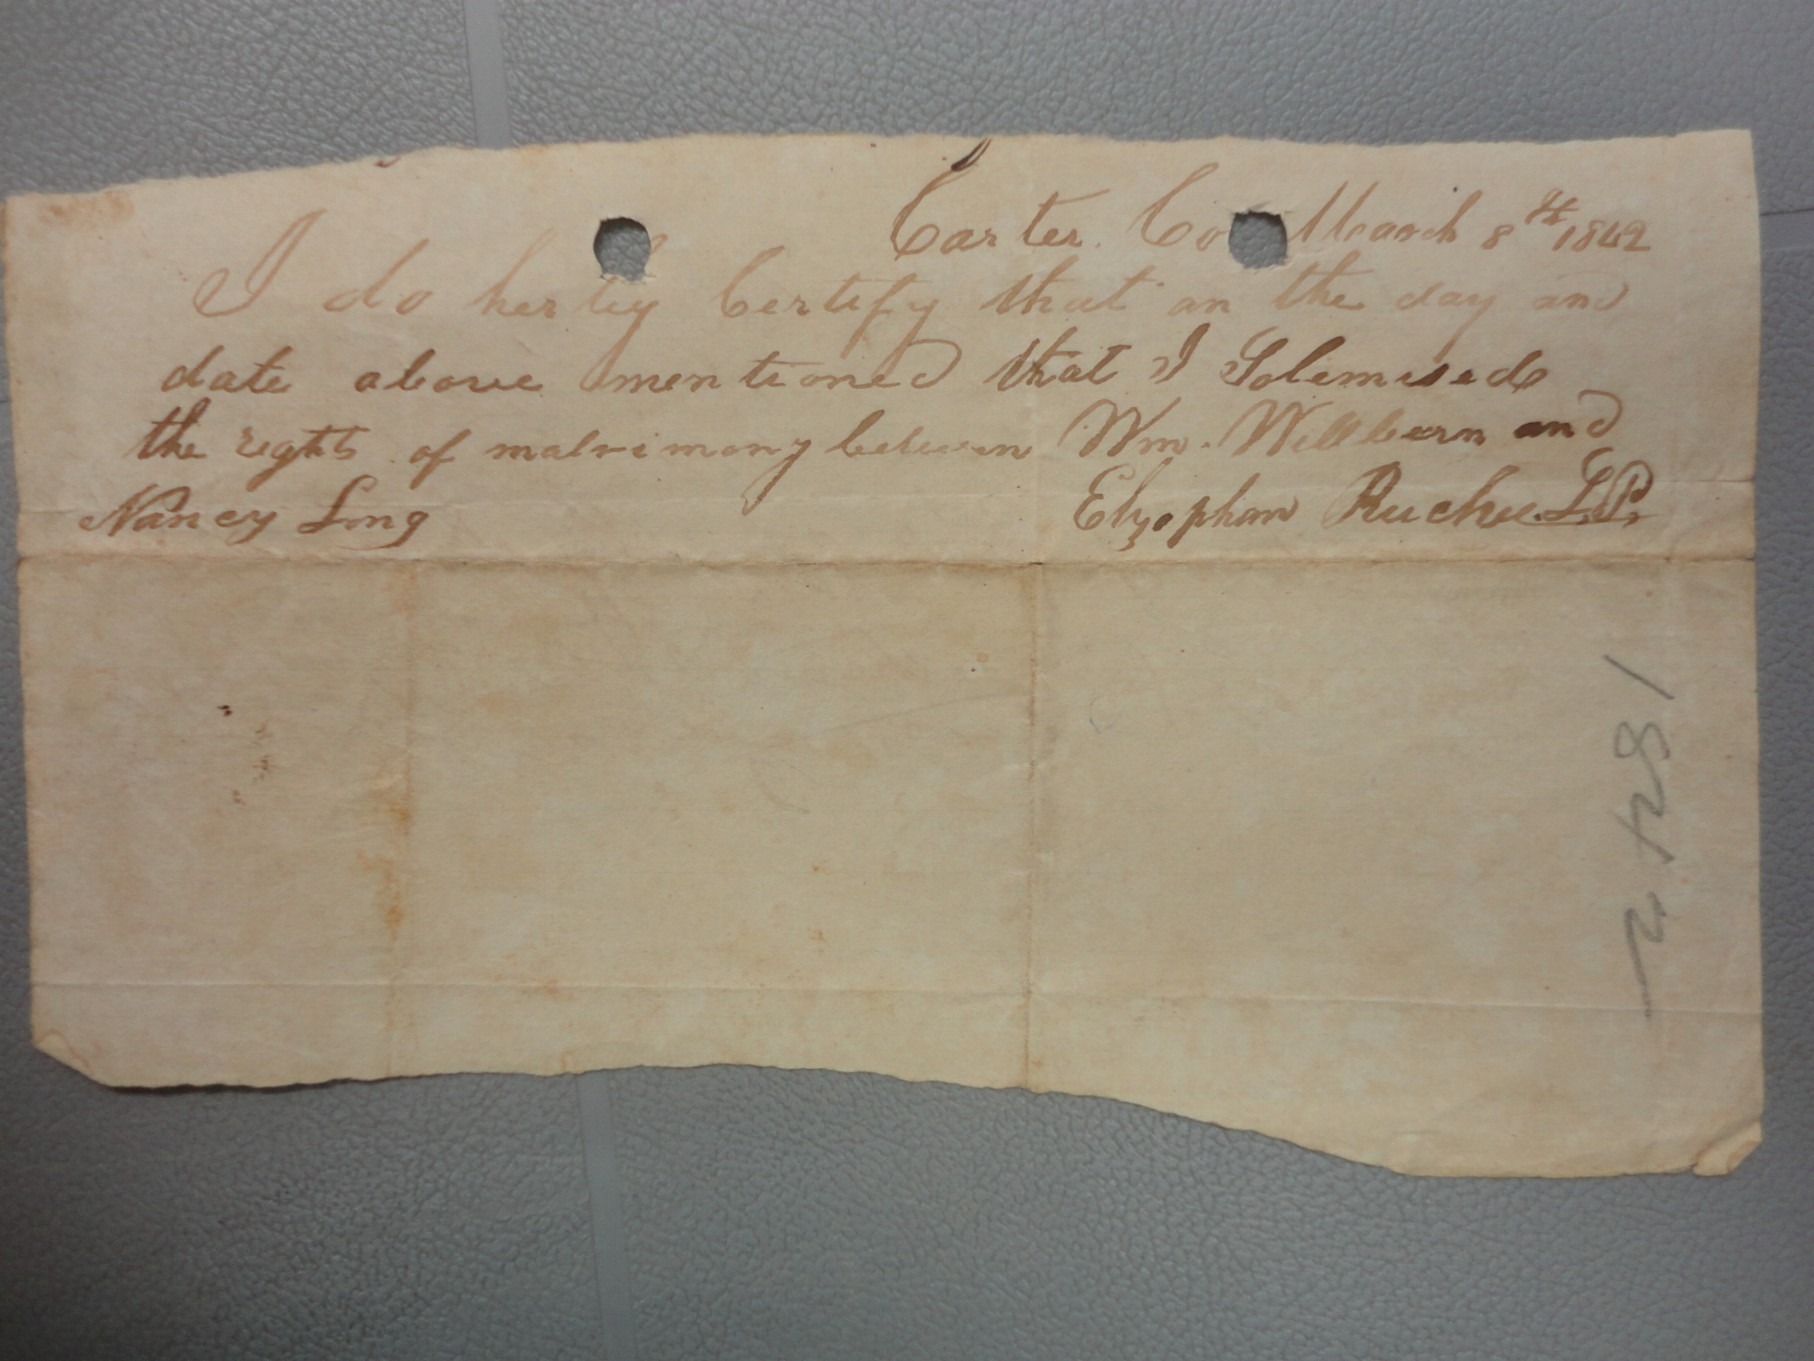 Carter Co March 8th 1842
I do herby Certify that an the day and
date above mentioned that I Solemised
the rights of matrimony between Wm. Willburn and
Nancy Long Elzophan Ruche J.P.
1842